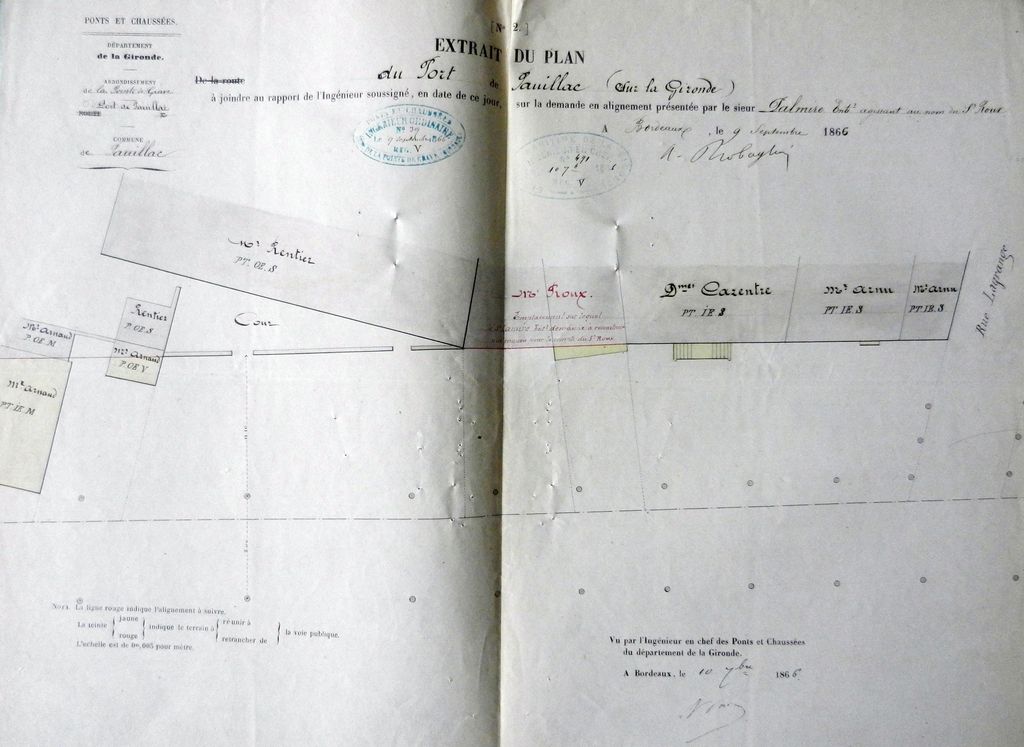 PONTS ET CHAUSSÉES.
DÉPARTEMENT
de la Gironde.
ARRONDISSEMENT
de la Pointe de Grave
Port de Pauillac
ROUTE
COMMUNE
de Pauillac
[No 2.]
EXTRAIT DU PLAN
De la route du Port de Pauillac (Sur la Gironde)
à joindre au rapport de l'Ingénieur soussigné, en date de ce jour, sur la demande en alignement présentée par le sieur Palmire Entr agissant au nom du Sr Roux
A Bordeaux, le 9 Septembre 1866
PONTS ET CHAUSSÉES
INGÉNIEUR ORDINAIRE
No 39
le 9 septembre 1866
REG. V
DE LA POINTE DE GRAVE
No 491
107
REG. V
Mr Rentier
PT. OE. S
Mr Arnaud
P. OE. M
Rentier
P. OE. S
Mr Arnaud
P. OE. V
Cour
Mr Arnaud
PT. IE. M
Mr Roux.
Emplacement sur lequel
Dmes Carentre
PT. IE. S
Mr Arnu
PT. IE. S
Mr Arnu
PT. IE. S
Rue Lagrange
NOTA. La ligne rouge indique l'alignement à suivre.
La teinte { jaune rouge } indique le terrain à { réunir à retrancher de } la voie publique.
L'échelle est de 0m,005 pour mètre.
Vu par l'Ingénieur en chef des Ponts et Chaussées
du département de la Gironde.
A Bordeaux, le 10 7bre 1866.